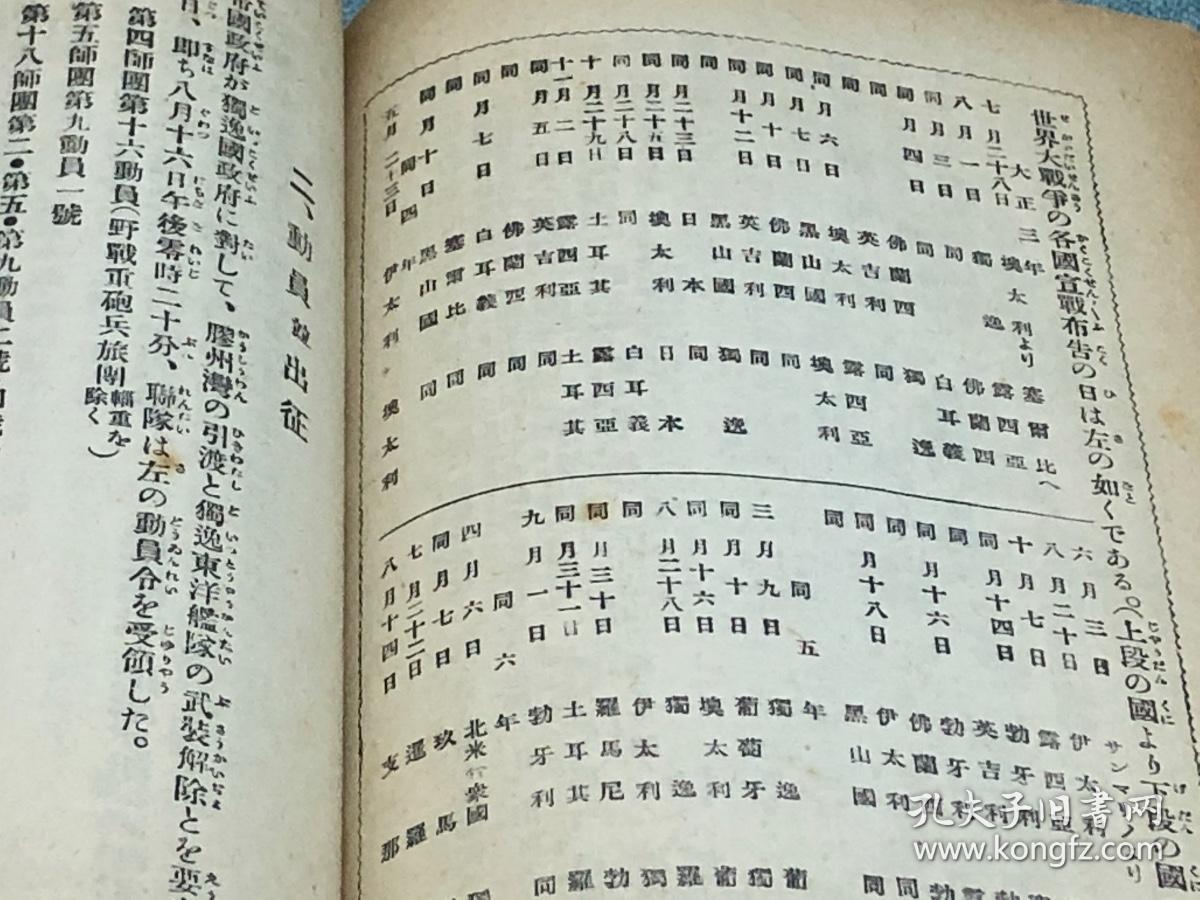 世界大戰爭の各國宣戰布告の日は左の如くである。(上段の國より下段の國
大正三年
七月二十八日 墺太利より 塞爾比へ
八月一日 獨逸 露西亞
同月三日 同 佛蘭西
同月四日 同 白耳義
同 佛蘭西 獨逸
同 英吉利 同
同月六日 墺太利 露西亞
同月七日 黑山國 墺太利
同月十日 佛蘭西 同
同月十二日 英吉利 同
同 黑山國 獨逸
同月二十三日 日本 同
同月二十五日 墺太利 日本
同月二十八日 同 白耳義
十月二十九日 土耳其 露西亞
十一月二日 露西亞 土耳其
同月五日 英吉利 同
同 佛蘭西 同
同月七日 白耳義 同
同 塞爾比 同
同月十日 黑山國 同
同四年
五月二十三日 伊太利 墺太利
六月三日 サンマリノより
八月二十日 伊太利
十月七日 露西亞
同月十四日 勃牙利
同 英吉利
同月十六日 勃牙利
同 佛蘭西
同月十八日 伊太利
同 黑山國
同五年
三月九日 獨逸
同月十日 葡萄牙
同月十六日 墺太利
八月二十八日 獨逸
同 伊太利
同月三十日 羅馬尼
同月三十一日 土耳其
九月一日 勃牙利
同六年
四月六日 北米合衆國
同月七日 玖馬
七月二十二日 暹羅
八月十四日 支那
二、動員並出征
帝國政府が獨逸國政府に對して、膠州灣の引渡と獨逸東洋艦隊の武装解除とを要
日、即ち八月十六日午後零時二十分、聯隊は左の動員令を受領した。
第四師團第十六動員(野戰重砲兵旅團輜重を除く)
第五師團第九動員一號
第十八師團第二・第五・第九動員二號
孔夫子旧书网
www.kongfz.com